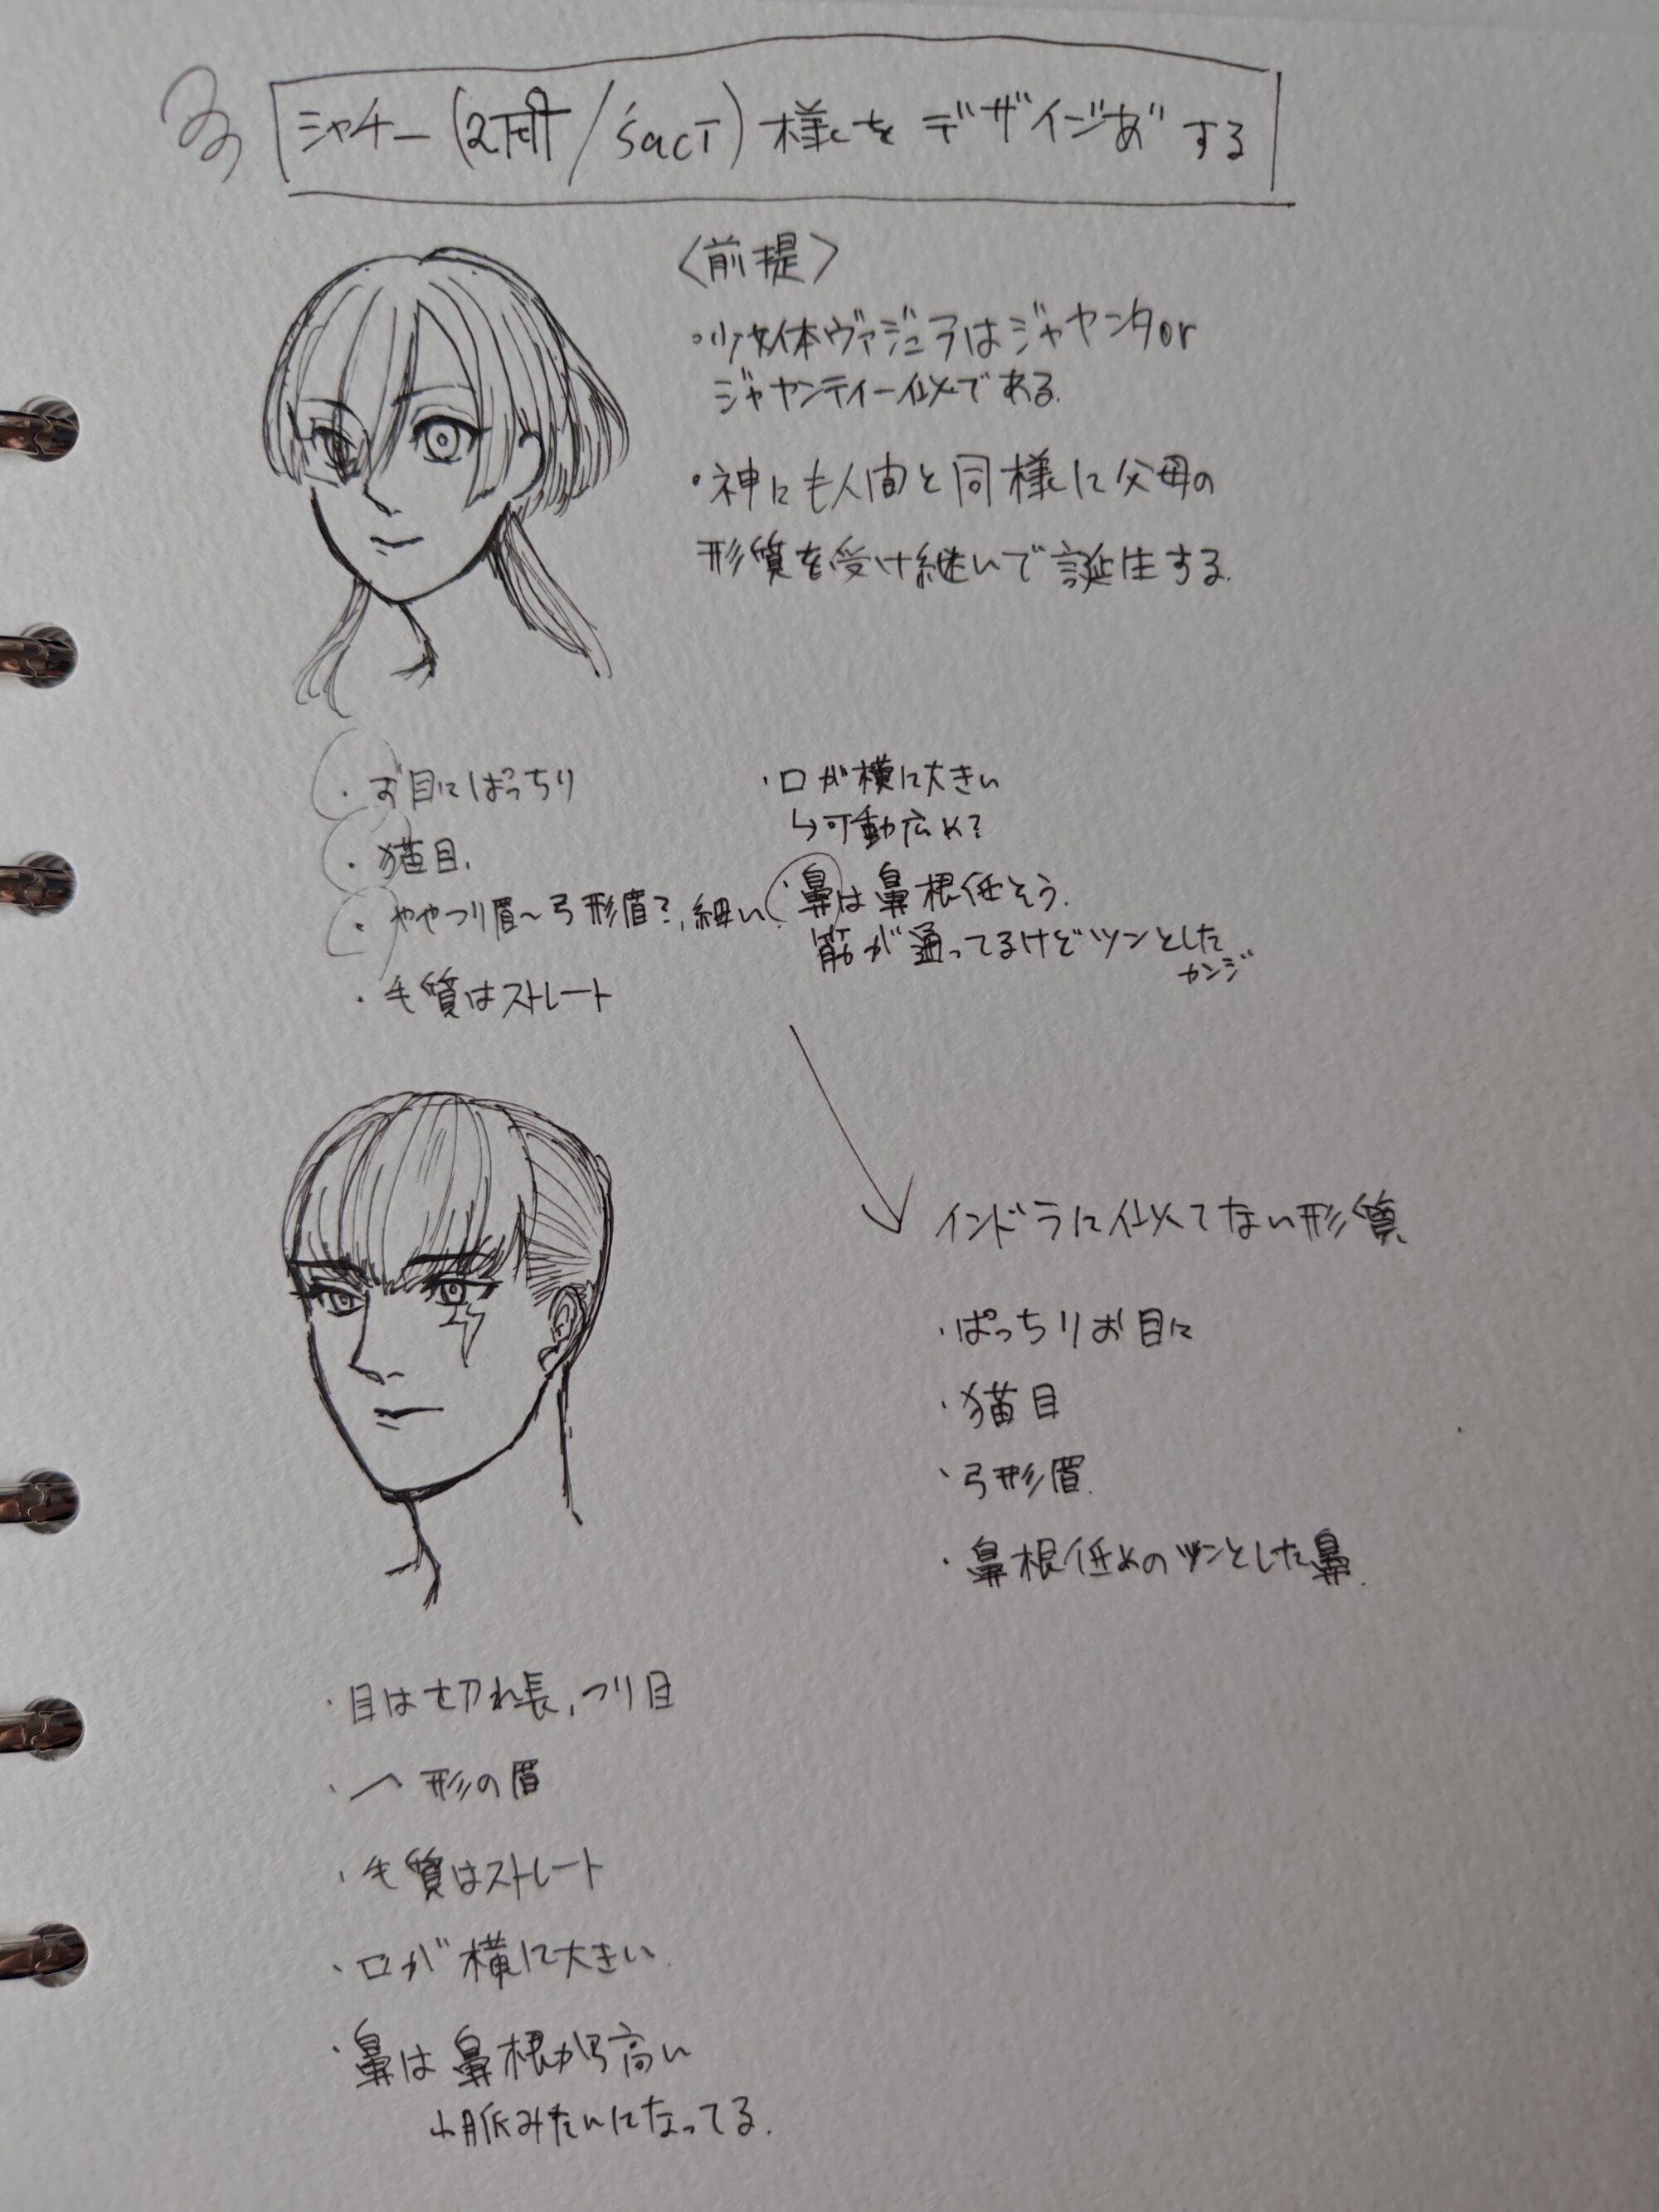 シャチー(शची/śacī)様をデザインする
〈前提〉
・少女体ヴァジュラはジャヤンタor
ジャヤンティー似である.
・神にも人間と同様に父母の
形質を受け継いで誕生する.
・お目にぱっちり
・猫目.
・ややつり眉〜弓形眉?,細い.
・毛質はストレート
・口が横に大きい
↳可動広め?
・鼻は鼻根低そう.
筋が通ってるけどツンとした
カンジ
インドラに似てない形質
・ぱっちりお目に
・猫目
・弓形眉.
・鼻根低めのツンとした鼻.
・目は切れ長,つり目
・へ形の眉
・毛質はストレート
・口が横に大きい
・鼻は鼻根から高い
山脈みたいになってる.